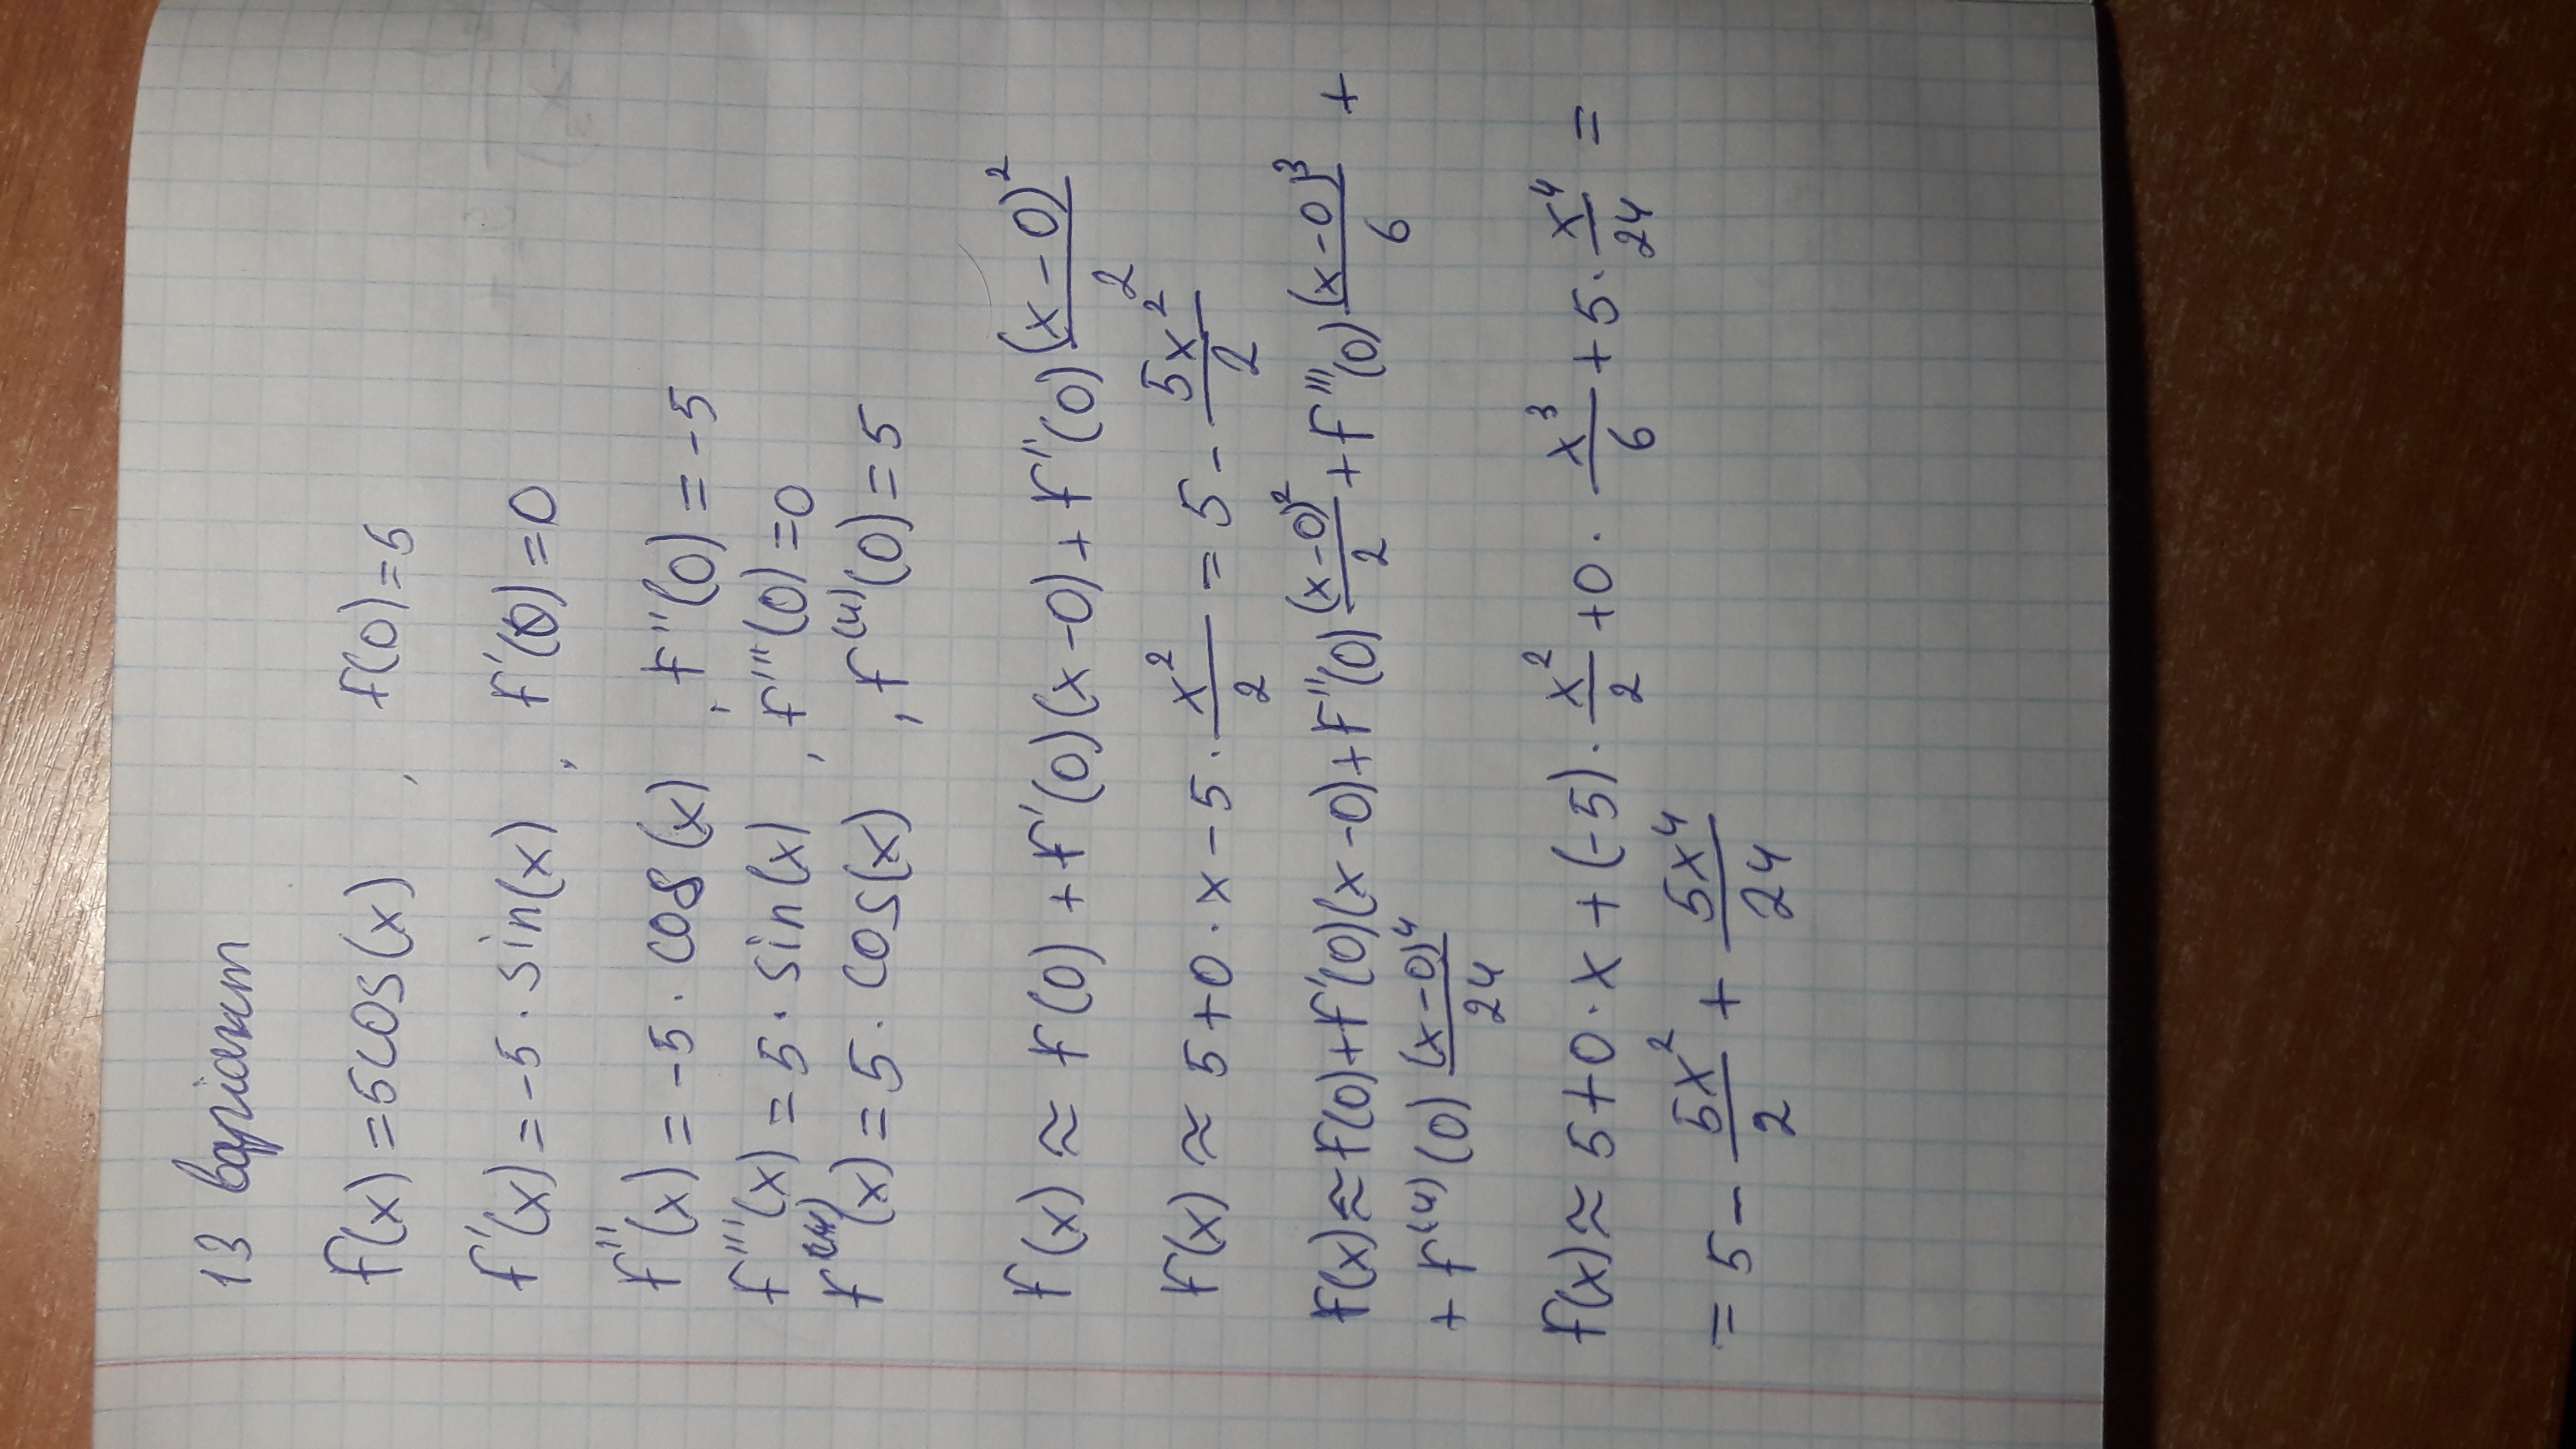 13 варіант
f(x) = 5cos(x) , f(0) = 5
f'(x) = -5 · sin(x) , f'(0) = 0
f''(x) = -5 · cos(x) , f''(0) = -5
f'''(x) = 5 · sin(x) , f'''(0) = 0
f⁽⁴⁾(x) = 5 · cos(x) , f⁽⁴⁾(0) = 5
f(x) ≈ f(0) + f'(0)(x-0) + f''(0) (x-0)²/2
f(x) ≈ 5+0 · x - 5 · x²/2 = 5 - 5x²/2
f(x) ≈ f(0) + f'(0)(x-0) + f''(0) (x-0)²/2 + f'''(0) (x-0)³/6 +
+ f⁽⁴⁾(0) (x-0)⁴/24
f(x) ≈ 5+0 · x + (-5) · x²/2 + 0 · x³/6 + 5 · x⁴/24 =
= 5 - 5x²/2 + 5x⁴/24